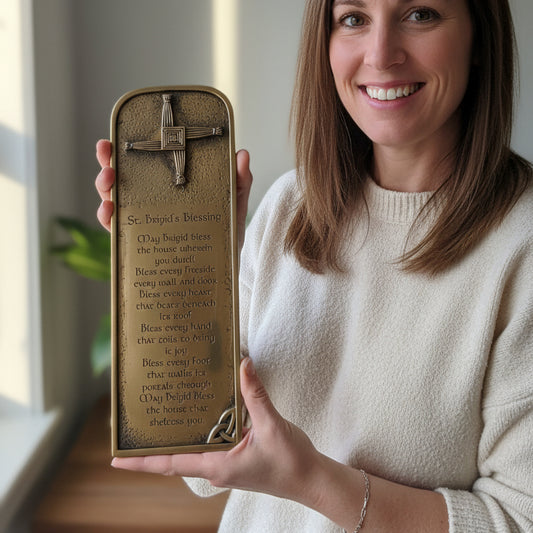 St. Brigid's Blessing
May Brigid bless
the house wherein
you dwell
Bless every fireside
every wall and door
Bless every heart
that beats beneath
its roof
Bless every hand
that toils to bring
it joy
Bless every foot
that walks its
portals through
May Brigid Bless
the house that
shelters you.